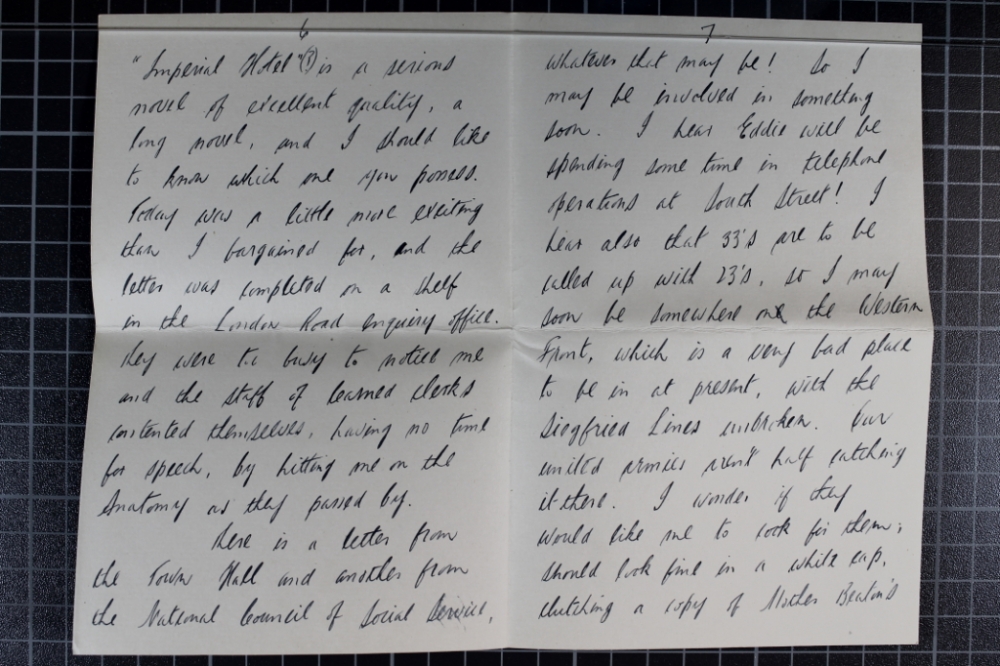 6
"Imperial Hotel" (?) is a serious
novel of excellent quality, a
long novel, and I should like
to know which one you possess.
Today was a little more exciting
than I bargained for, and the
letter was completed on a shelf
in the London Road enquiry office.
They were too busy to notice me
and the staff of learned clerks
contented themselves, having no time
for speech, by hitting me on the
Anatomy as they passed by.
Here is a letter from
the Town Hall and another from
the National Council of Social Service,
7
whatever that may be! So I
may be involved in something
soon. I hear Eddie will be
spending some time in telephone
operations at South Street! I
hear also that 33's are to be
called up with 23's, so I may
soon be somewhere on the Western
Front, which is a very bad place
to be in at present, with the
Siegfried Lines unbroken. Our
united armies aren't half catching
it there. I wonder if they
would like me to cook for them,
should look fine in a white cap,
clutching a copy of Mother Beaton's